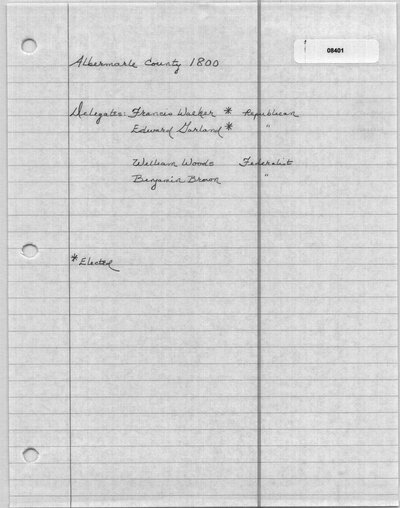 08401
Albermarle County 1800
Delegates: Francis Walker * Republican
Edward Garland * "
William Woods Federalist
Benjamin Brown "
* Elected